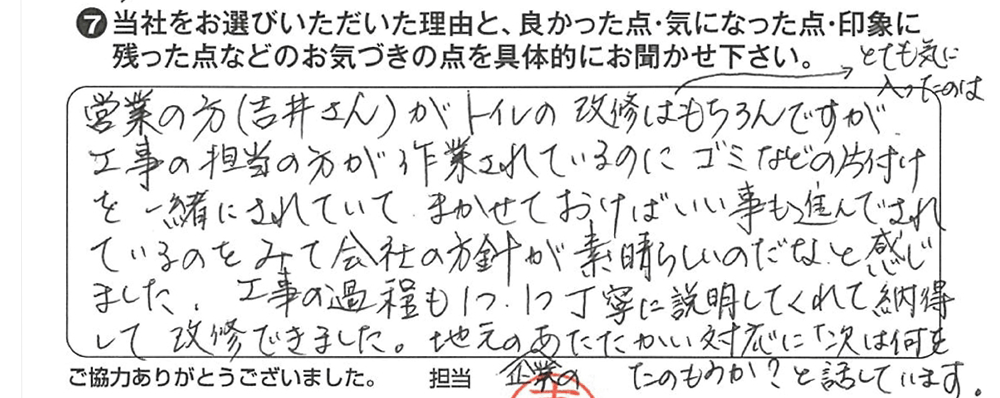 ❼当社をお選びいただいた理由と、良かった点・気になった点・印象に
残った点などのお気づきの点を具体的にお聞かせ下さい。
とても気に
入ったのは
営業の方(吉井さん)がトイレの改修はもちろんですが
工事の担当の方が作業されているのにゴミなどの片付け
を一緒にされていて、まかせておけばいい事も進んでされ
ているのをみて会社の方針が素晴らしいのだな、と感じ
ました、工事の過程も1つ、1つ丁寧に説明してくれて納得
して改修できました。地元のあたたかい対応に「次は何を
企業の
たのもうか?と話しています。
ご協力ありがとうございました。 担当